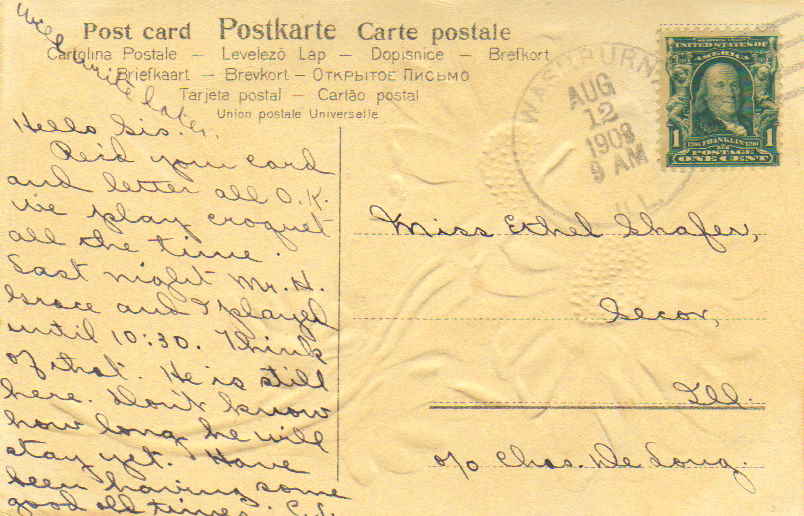 Post card Postkarte Carte postale
Cartolina Postale – Levelező Lap – Dopisnice – Brefkort
Briefkaart – Brevkort – Открытое Письмо
Tarjeta postal – Cartão postal
Union postale Universelle
Will write later.
Hello Sis.
Rec'd your card
and letter all O.K.
We play croquet
all the time.
Last night Mr. H.
Grace and I played
until 10:30. Think
of that. He is still
here. Don't know
how long he will
stay yet. Have
been having some
good old times.
WASHBURN
AUG
12
1908
9 AM
ILL.
UNITED STATES OF
AMERICA
1 FRANKLIN 1
POSTAGE
ONE CENT
Miss Ethel Shafer,
Secor,
Ill.
c/o Chas. De Long.